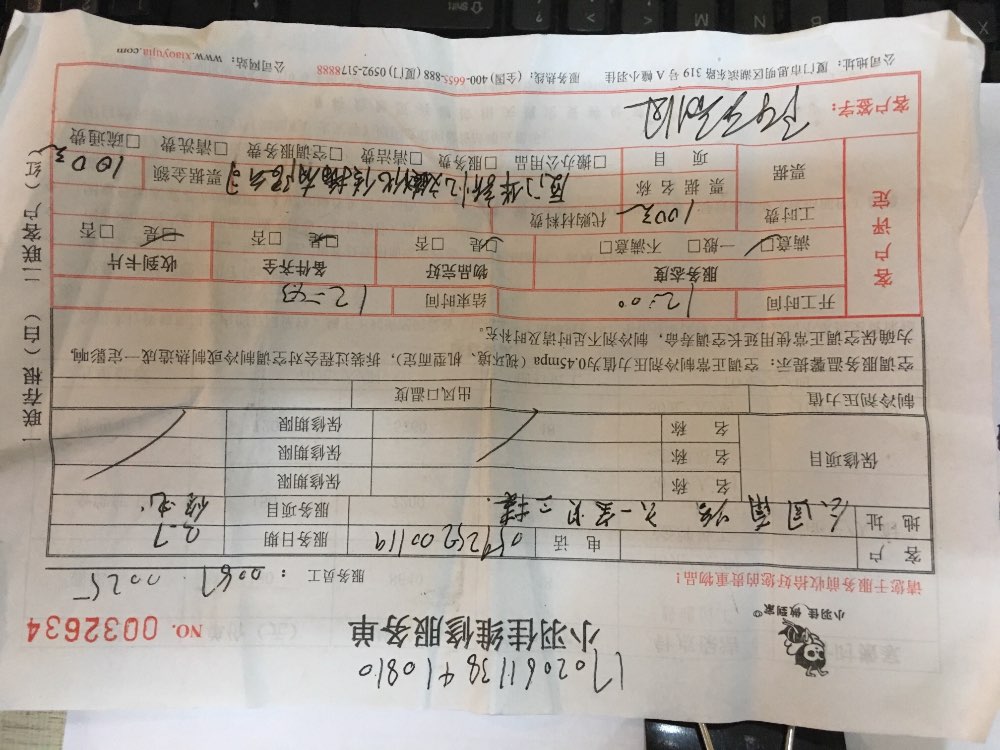 1702061138410810
小羽佳 做到家
小羽佳维修服务单
NO. 0032634
请您于服务前收拾好您的贵重物品!
服务员工: 0067. 0025
客户 电话 05925200119 服务日期 2.7
地址 服务项目
保修项目 名称 保修期限
名称 保修期限
名称 保修期限
制冷剂压力值 出风口温度
空调服务温馨提示: 空调正常制冷剂压力值为0.45mpa (视环境、机型而定), 拆装过程会对空调制冷或制热造成一定影响,
为确保空调正常使用延长空调寿命, 制冷剂不足时请及时补充。
客户评定
开工时间 12:00 结束时间
服务态度 物品完好 备件齐全 收到卡片
满意□ 一般□ 不满意□ □是 □否 □是 □否 □是 □否
工时费 100元 代购材料费
票据 票据名称 票据金额 100元
项目 □搬办公用品 □服务费 □清洁费 □空调服务费 □清洗费 □疏通费
客户签字:
公司地址: 厦门市思明区湖滨东路 319 号 A 幢小羽佳 服务热线: (全国) 400-6655-888 (厦门) 0592-5178888 公司网站: www.xiaoyujia.com
一联存根 (白) 二联客户 (红)